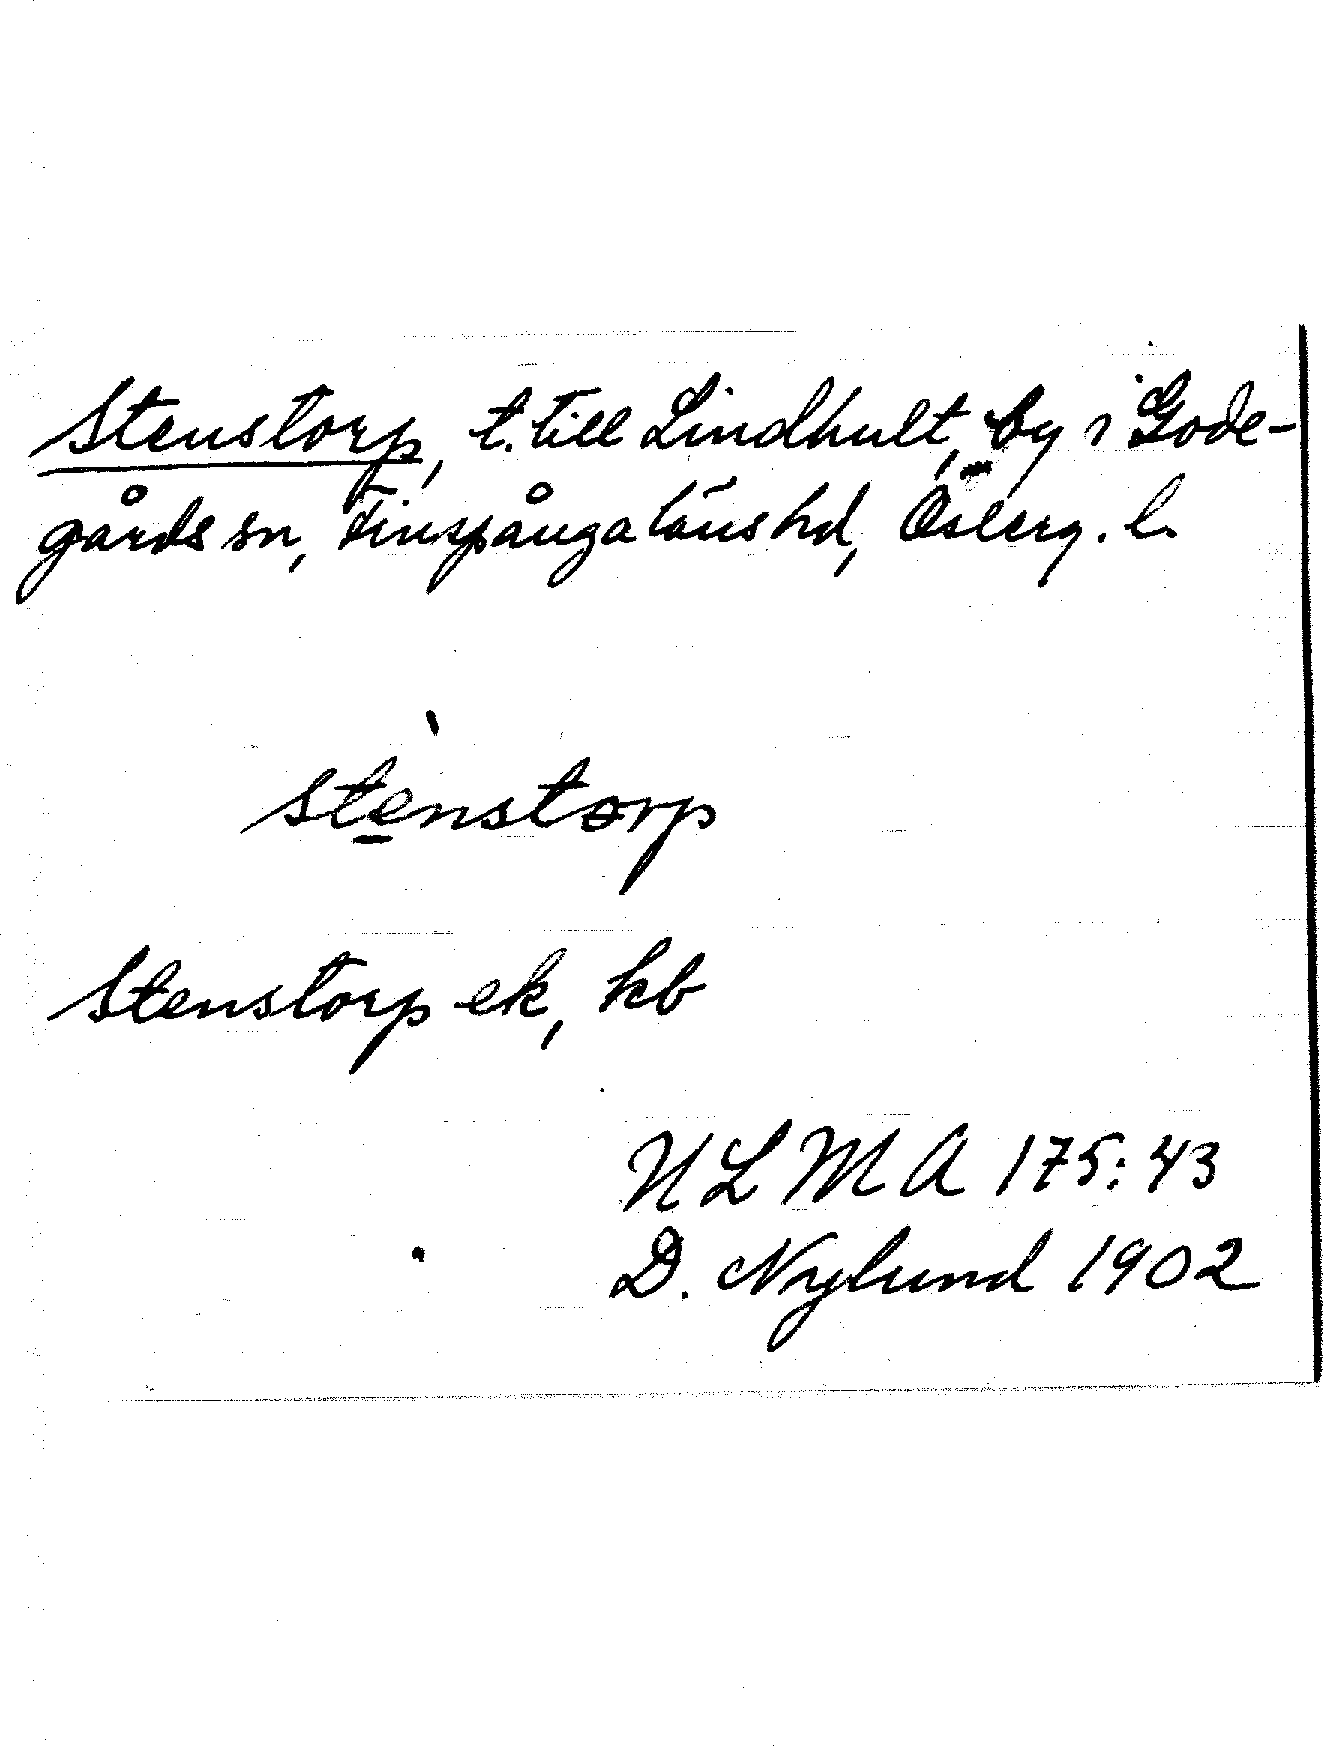 Stenstorp, t. till Lindhult, by i Gode-
gårds sn, Finspånga läns hd, Österg. l.
stè̱nstorp
Stenstorp ek, kb
ULMA 175:43
D. Nylund 1902